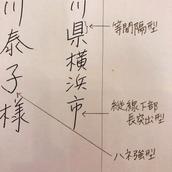 川県横浜市
川泰子様
等間隔型
縦線下部
長突出型
ハネ強型